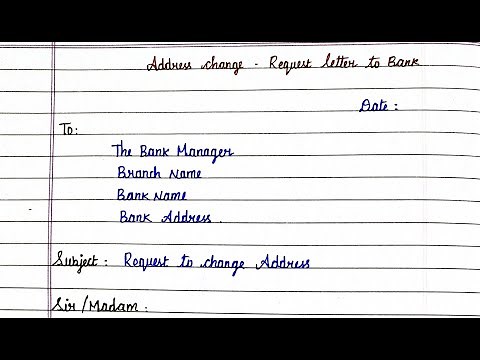 Address change - Request letter to Bank
Date :
To:
The Bank Manager
Branch Name
Bank Name
Bank Address.
Subject : Request to change Address
Sir/Madam :